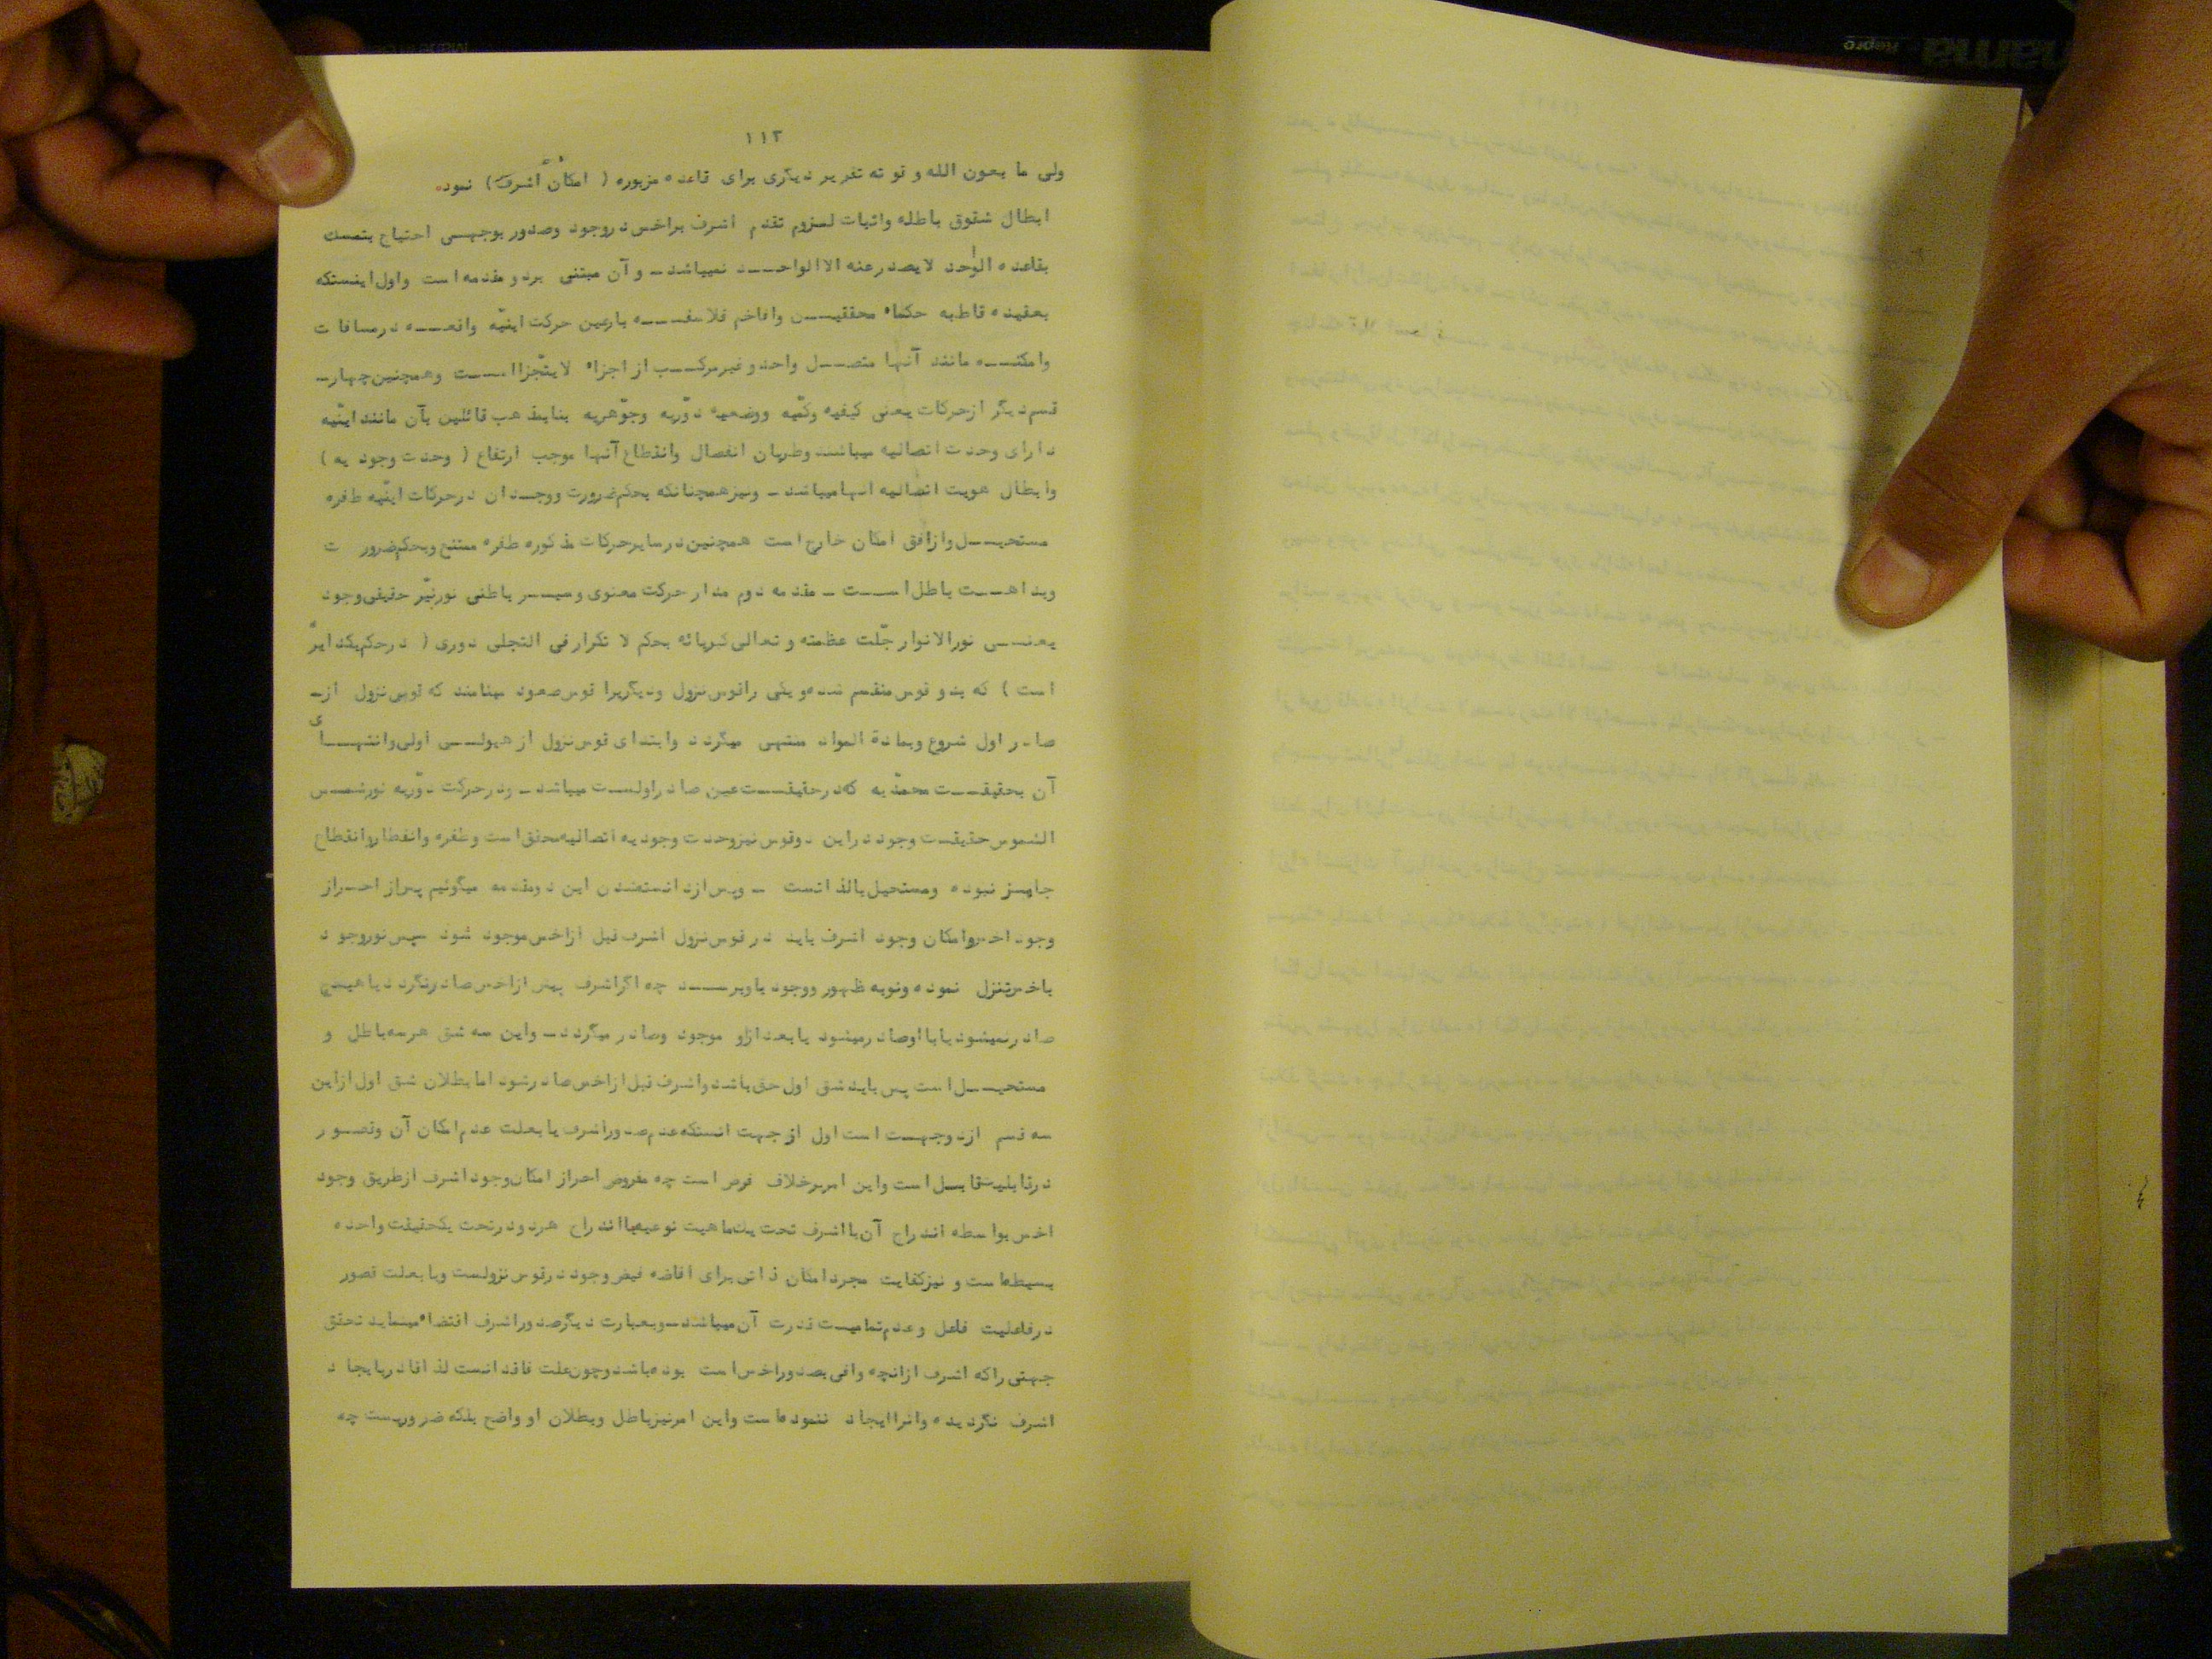 ۱۱۲
ولی ما بعون الله و قو ته تقریر دیگری برای قاعده مزبوره ( امکان اشرف ) نموده
ابطال شقوق باطله واثبات لـزوم تقدم اشرف براخس دروجود وصدور بوجهـی احتیاج بتمسك
بقاعده الواحد لایصدرعنه الاالواحــد نمیباشدـ و آن مبتنی بردو مقدمه است واول اینستکه
بعقیده قاطبه حکماء محققیــن وافاخم فلاسفــه بارعین حرکت اینیّه واقعــه درمسافا ت
وامکنــه مانند آنها متصــل واحد و غیرمرکــب از اجزاء لایتّجزااســت وهمچنین چهارـ
قسم دیگر ازحرکات یعنی کیفیه وکمّیه ووضعیه دوّریه وجوّهریه بنابمذ هب قائلین بآن مانند اینّیه
دارای وحدت اتصالیه میباشند وطریان انفصال وانقطاع آنها موجب ارتفاع ( وحدت وجود یه )
وابطال هویت اتصالیه انهامیباشد ـ ونیزهمچنانکه بحکم ضرورت ووجـدان درحرکات اینّیه طفره
مستحیــل وازافق امکان خارج است همچنین درسایرحرکات مذ کوره طفره ممتنع وبحکم ضرور ت
وبداهــت باطل اســت ـ مقدمه دوم مدار حرکت معنوی وسیــر باطنی نورنیّر حقیقی وجود
یعنــی نورالانوار جّلت عظمته و تعالی کبریائه بحکم لا تکرارفی التجلی دوری ( درحکم یکدایرّ
است ) که بدو قوس منقسم شده و یکی راقوس نزول ودیگریرا قوس صعود مینامند که قوس نزول ازـ
صادر اول شروع وبمادة المواد منتهی میگردد وابتدای قوس نزول از هیولــی اولی وانتهــأی
آن بحقیقــت محمدّیه که درحقیقــت عین صادراولســت میباشدـ ودرحرکت دوّریه نورشمــس
الشموس حقیقت وجود دراین دوقوس نیزوحدت وجودیه اتصالیه محقق است وطفره وانفطاروانقطاع
جایــز نبوده ومستحیل بالذاتست ـ وپس ازدانستنشدن این دومقدمه میگوئیم پس از احـراز
وجود اخس وامکان وجود اشرف باید در قوس نزول اشرف قبل ازاخس موجود شود سپس نوروجو د
باخس تنزل نموده ونوبه ظهور ووجود باوبرســد چه اگراشرف پیش ازاخس صادرنگرد دیا هیــچ
صادرنمیشود یا بااوصادرمیشود یا بعدازاو موجود وصادر میگرددـ واین سه شق هرسه باطل و
مستحیــل است پس باید شق اول حق باشد واشرف قبل ازاخس صادرشود امابطلان شق اول ازاین
سه قسم ازدوجهـت است اول از جهت انستکه عدم صدوراشرف یا بعلت عدم امکان آن وقصـو ر
درقابلیت قابـل است واین امربرخلاف فرض است چه مفروض احراز امکان وجود اشرف ازطریق وجود
اخس بواسطه اندراج آن با اشرف تحت یك ماهیت نوعیه یا اندراج هردودرتحت یکحقیقت واحده
بسیطه است و نیزکفایت مجرد امکان ذاتی برای افاضه فیض وجود درقوس نزولست ویا بعلت قصور
درفاعلیت فاعل وعدم تمامیـت قدرت آن میباشدـ وبعبارت دیگرصدوراشرف اقتضاء مینماید تحقق
جهتی راکه اشرف ازانچه وافی بصدوراخس است بوده باشد وچون علت فاقد انست لذ اقادربایجا د
اشرف نگردیده وانراایجاد ننموده است واین امرنیزباطل وبطلان او واضح بلکه ضروریست چه